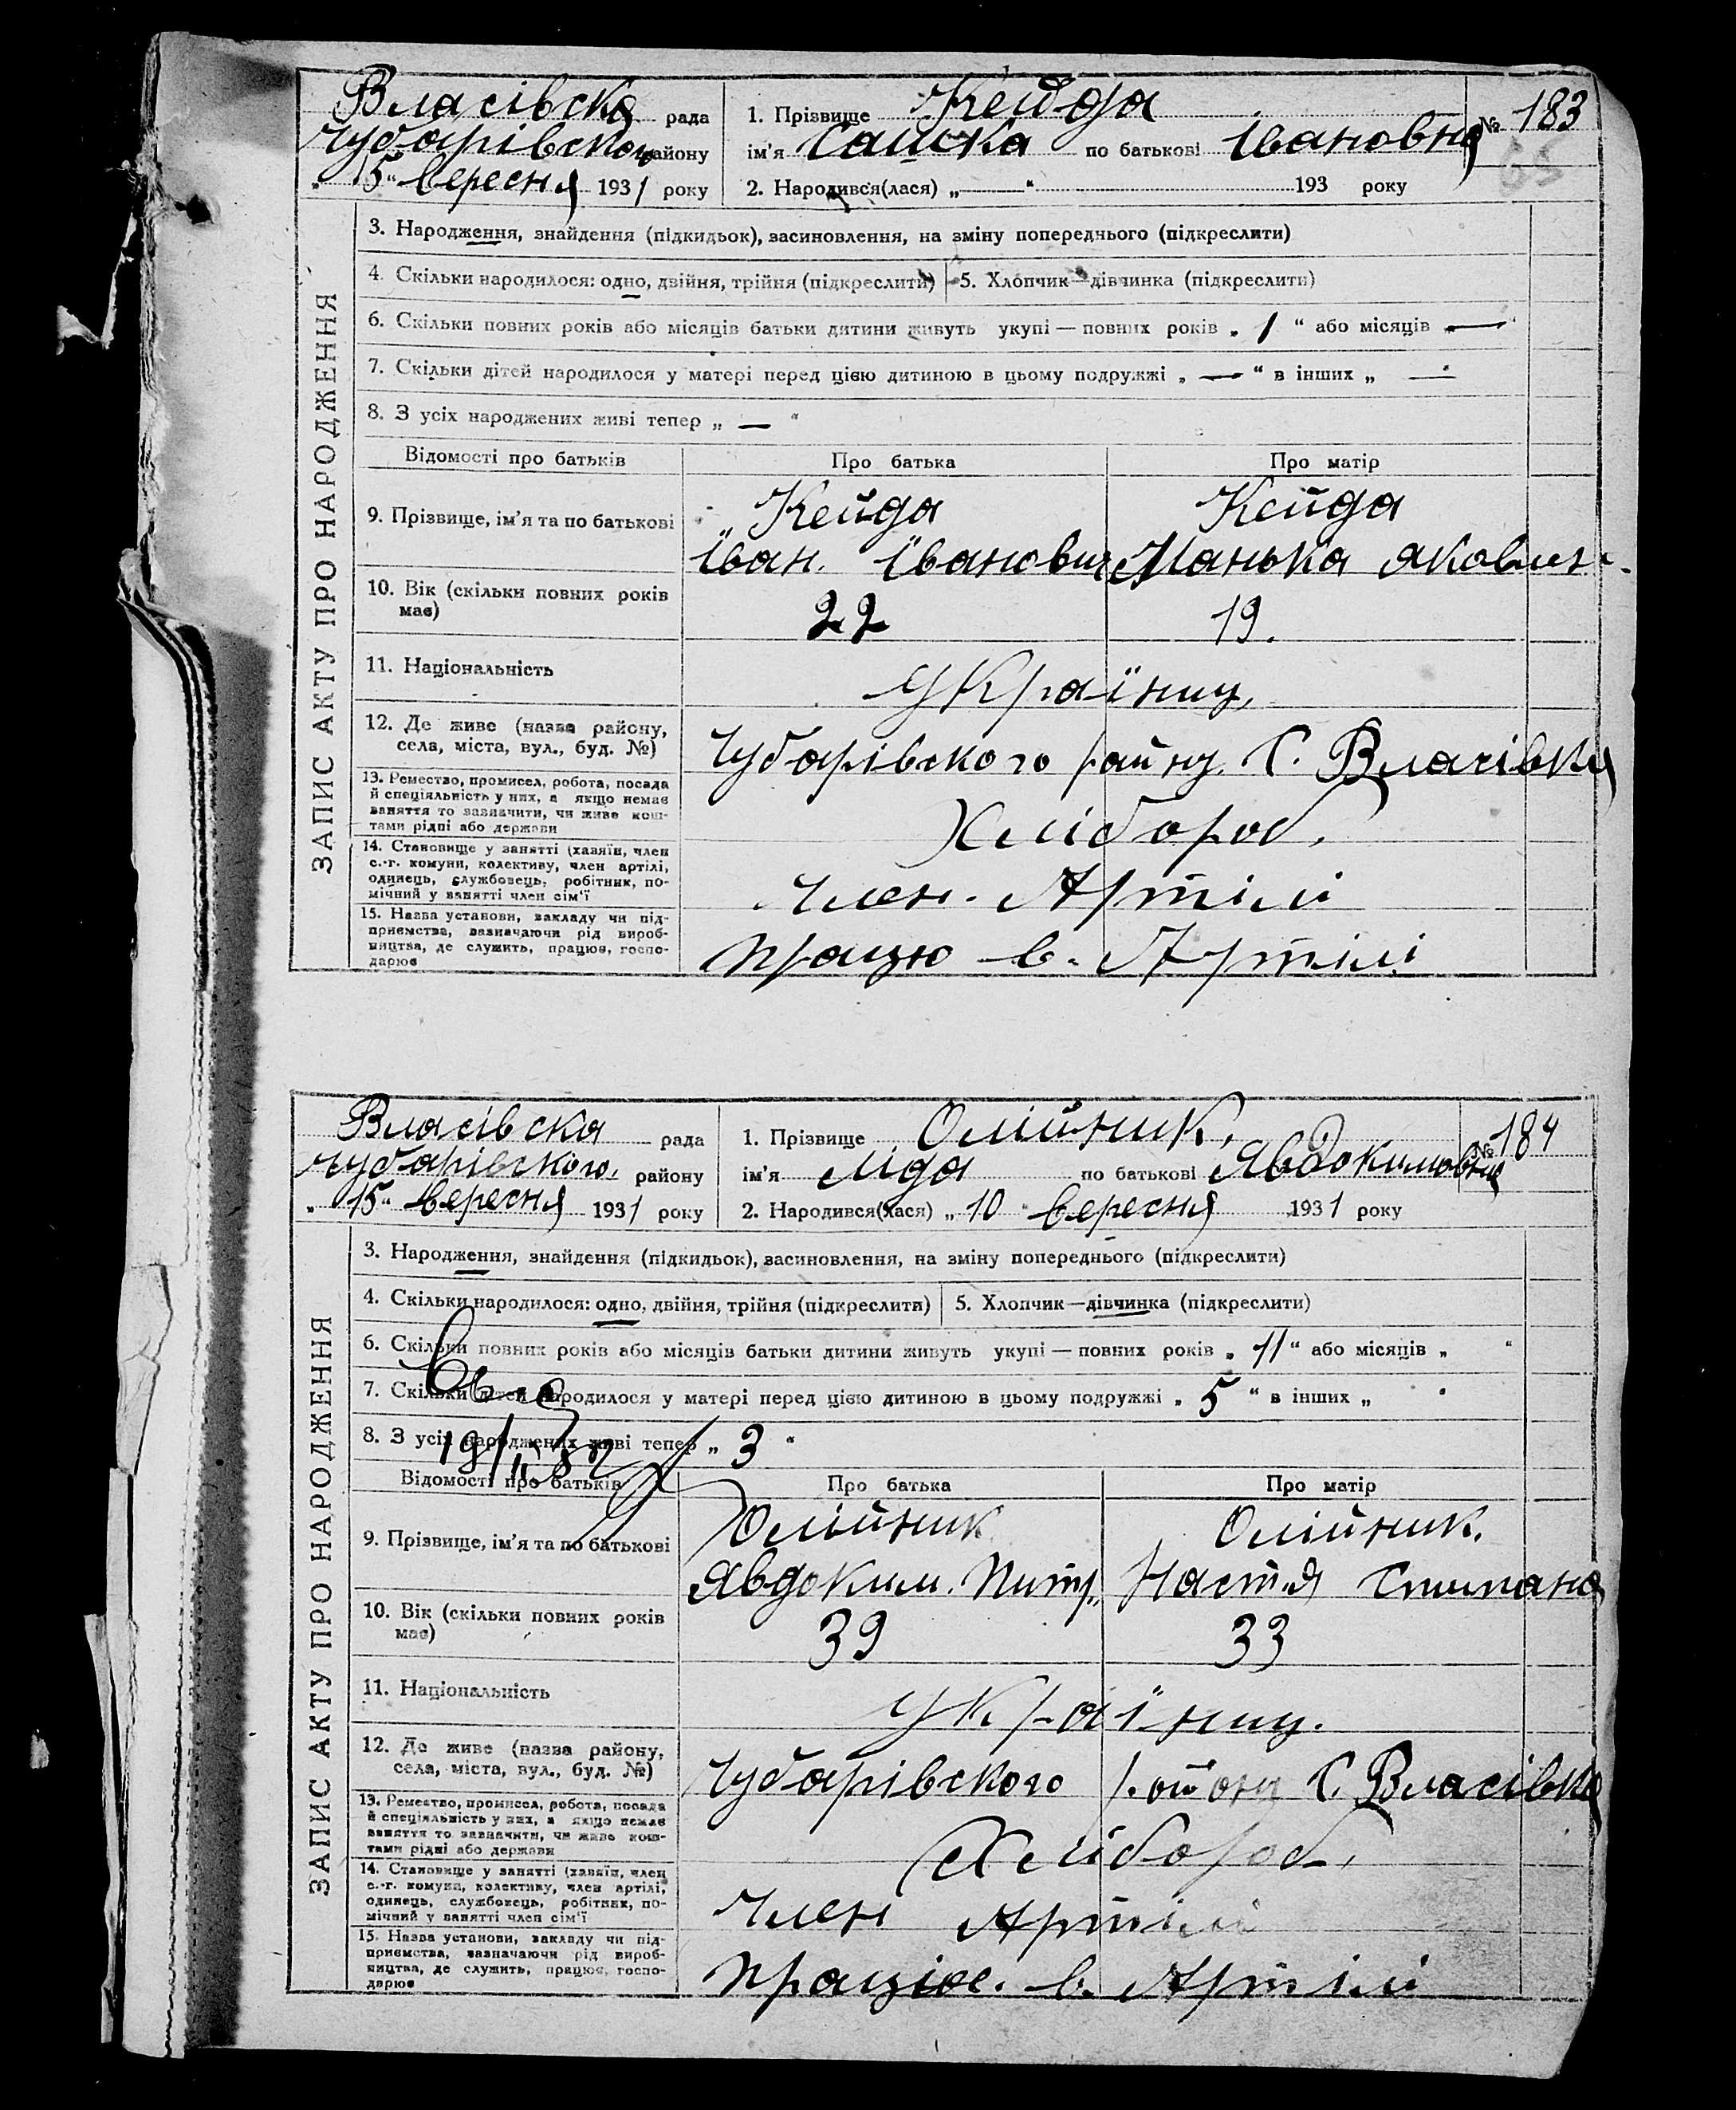 Власівска рада
Чубарівского району
„15“ вересня 1931 року
1. Прізвище Кейда
ім'я по батькові Івановна
2. Народився(лася) „—“ 193 року
№ 183
65
ЗАПИС АКТУ ПРО НАРОДЖЕННЯ
3. Народження, знайдення (підкидьок), засиновлення, на зміну попереднього (підкреслити)
4. Скільки народилося: одно, двійня, трійня (підкреслити) 5. Хлопчик—дівчинка (підкреслити)
6. Скільки повних років або місяців батьки дитини живуть укупі — повних років „ 1 “ або місяців „ — “
7. Скільки дітей народилося у матері перед цією дитиною в цьому подружжі „ — “ в інших „ — “
8. З усіх народжених живі тепер „ — “
Відомості про батьків Про батька Про матір
9. Прізвище, ім'я та по батькові Кейда Кейда
Іван. Іванович Манька
10. Вік (скільки повних років має) 22 19.
11. Національність Україниц,
12. Де живе (назва району, села, міста, вул., буд. №) Чубарівского С. Власівка
13. Ремество, промисел, робота, посада
й спеціяльність у них, а якщо немає
заняття то зазначити, чи живе кош-
тами рідні або держави
Хлібороб,
14. Становище у занятті (хазяїн, член
с.-г. комуни, колективу, член артілі,
одинець, службовець, робітник, по-
мічний у занятті член сім'ї
Член. Артілі
15. Назва установи, закладу чи під-
приємства, зазначаючи рід вироб-
ництва, де служить, працює, госпо-
дарює
працю в. Артілі
Власівска рада
Чубарівского. району
„15“ вересня 1931 року
1. Прізвище Олійник,
ім'я Ліда по батькові Явдокимовна
2. Народився(лася) „ 10 “ вересня 1931 року
№ 184
ЗАПИС АКТУ ПРО НАРОДЖЕННЯ
3. Народження, знайдення (підкидьок), засиновлення, на зміну попереднього (підкреслити)
4. Скільки народилося: одно, двійня, трійня (підкреслити) 5. Хлопчик—дівчинка (підкреслити)
6. Скільки повних років або місяців батьки дитини живуть укупі — повних років „ 11 “ або місяців „ “
7. Скільки дітей народилося у матері перед цією дитиною в цьому подружжі „ 5 “ в інших „ “
8. З усіх народжених живі тепер „ 3 “
Відомості про батьків Про батька Про матір
9. Прізвище, ім'я та по батькові Олійник Олійник.
Явдоким. Питр. Настя
10. Вік (скільки повних років має) 39 33
11. Національність Україниц.
12. Де живе (назва району, села, міста, вул., буд. №) Чубарівского С. Власівка
13. Ремество, промисел, робота, посада
й спеціяльність у них, а якщо немає
заняття то зазначити, чи живе кош-
тами рідні або держави
Хлібороб,
14. Становище у занятті (хазяїн, член
с.-г. комуни, колективу, член артілі,
одинець, службовець, робітник, по-
мічний у занятті член сім'ї
Член Артілі
15. Назва установи, закладу чи під-
приємства, зазначаючи рід вироб-
ництва, де служить, працює, госпо-
дарює
працює. в. Артілі